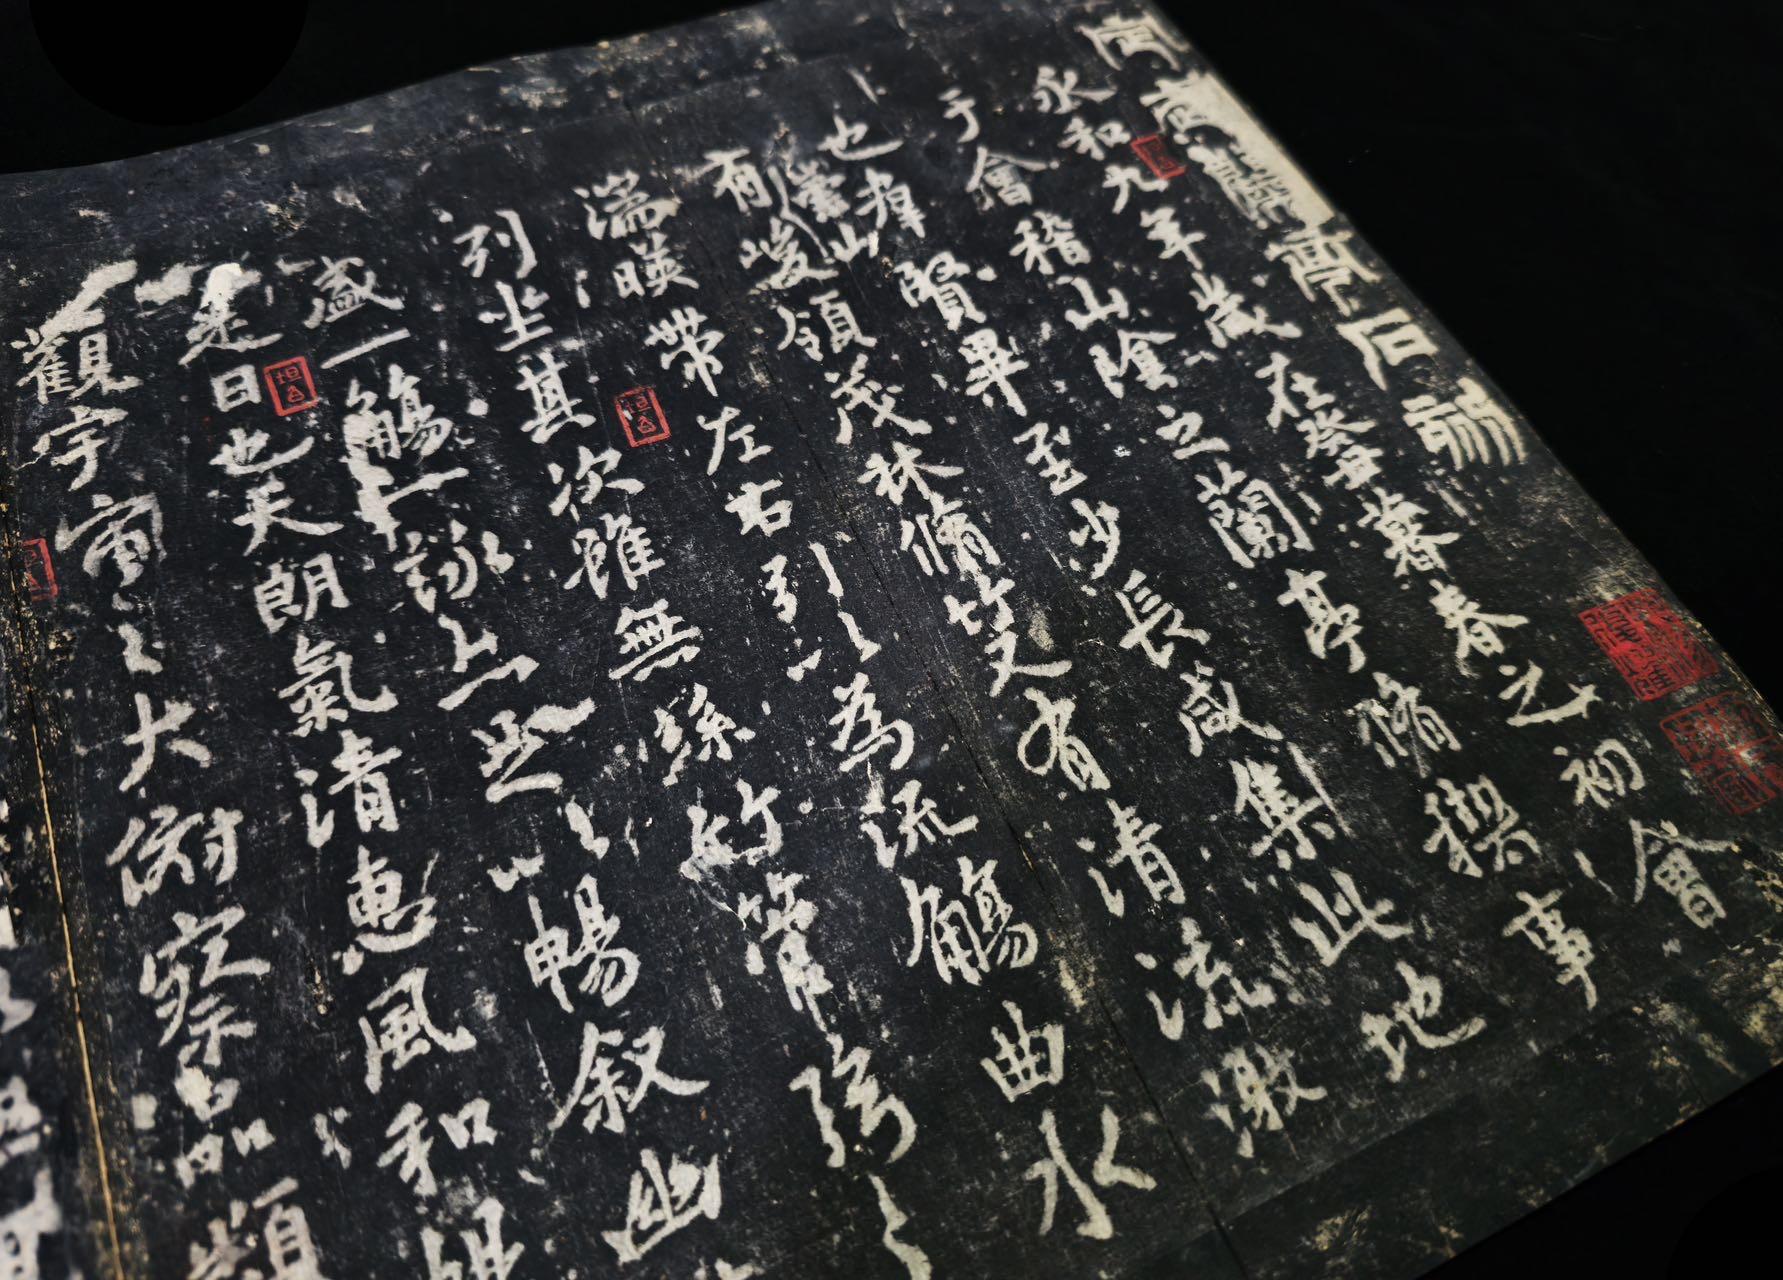 蘭亭石刻
永和九年歲在癸丑暮春之初會
于會稽山陰之蘭亭脩稧事
也群賢畢至少長咸集此地
有崇山峻領茂林脩竹又有清流激
湍暎帶左右引以為流觴曲水
列坐其次雖無絲竹管弦之
盛一觴一詠亦足以暢叙幽
是日也天朗氣清惠風和暢
觀宇宙之大俯察品類